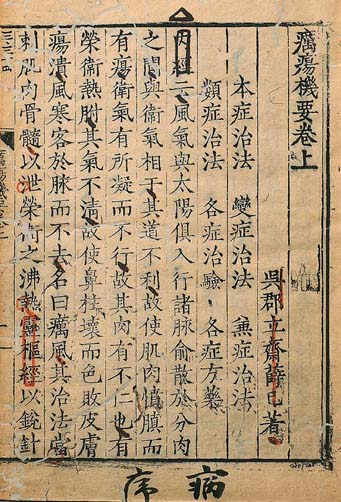 癘瘍機要卷上
吳郡立齋薛己著
本症治法 變症治法 兼症治法
類症治法 各症治驗 各症方藥
內經云風氣與太陽俱入行諸脉俞散於分肉
之間與衛氣相干其道不利故使肌肉憤䐜而
有瘍衛氣有所凝而不行故其肉有不仁也有
榮衛熱胕其氣不清故使鼻柱壞而色敗皮膚
瘍潰風寒客於脉而不去名曰癘風其治法當
刺肌肉骨髓以泄榮衛之沸熱靈樞經以銳針